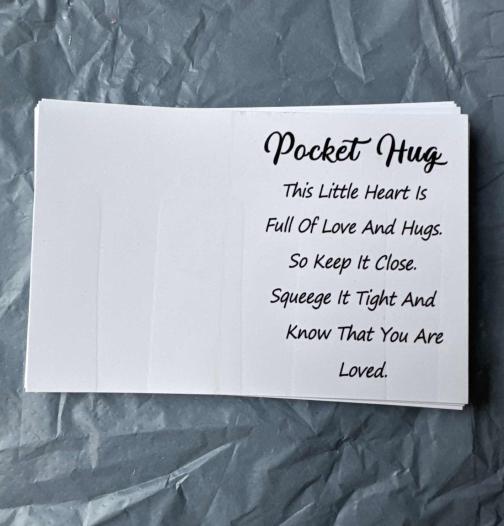 Pocket Hug
This Little Heart Is
Full Of Love And Hugs.
So Keep It Close.
Squeege It Tight And
Know That You Are
Loved.